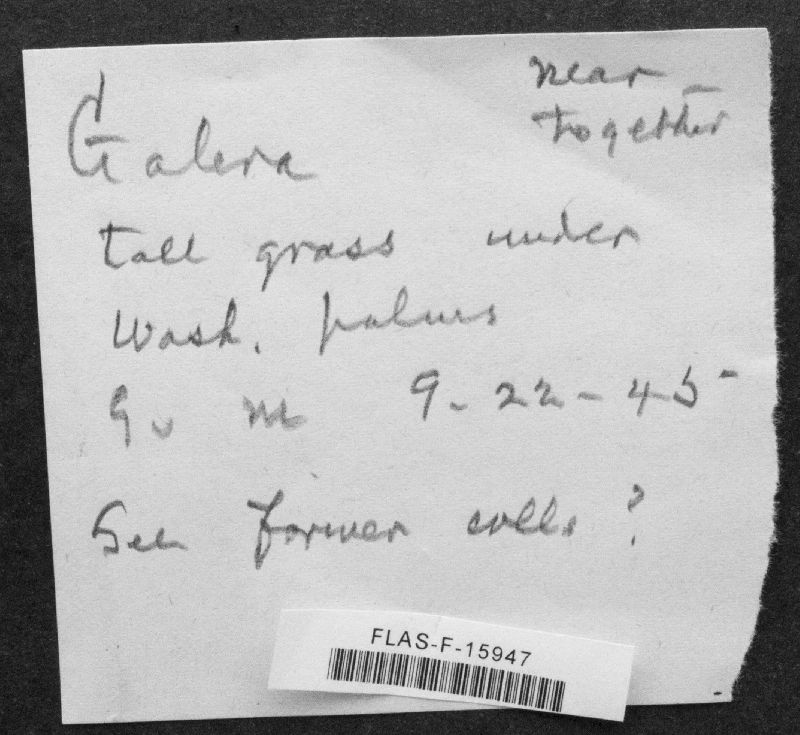 near
together
Galera
tall grass under
Wash. palms
G. M 9-22-45
See former colls?
FLAS-F-15947